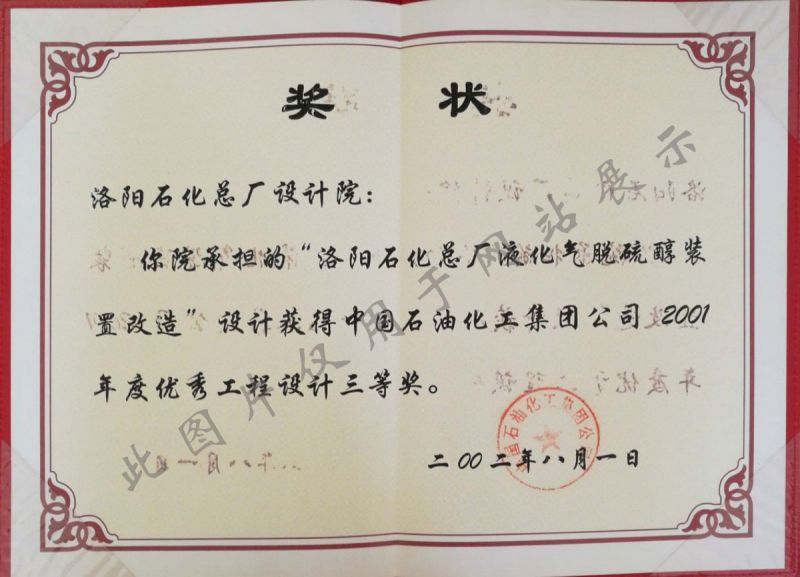 奖 状
洛阳石化总厂设计院：
你院承担的“洛阳石化总厂液化气脱硫醇装
置改造”设计获得中国石油化工集团公司 2001
年度优秀工程设计三等奖。
中国石油化工集团公司
二00二年八月一日
此图片仅用于网站展示